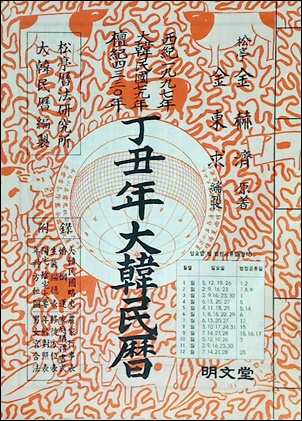 松亭 金赫濟 原著
金東求 編製
西紀一九九七年
大韓民國七九年
檀紀四三三〇年
丁丑年大韓民曆
松亭曆法研究所
大韓民曆編製
附錄
월별 일요일 법정공휴일
1 월 5, 12, 19, 26 1, 2
2 월 2, 9, 16, 23 7, 8, 9
3 월 2, 9, 16, 23, 30 1
4 월 6, 13, 20, 27 5
5 월 4, 11, 18, 25 5, 14
6 월 1, 8, 15, 22, 29 6
7 월 6, 13, 20, 27 17
8 월 3, 10, 17, 24, 31 15
9 월 7, 14, 21, 28 15, 16, 17
10 월 5, 12, 19, 26 3
11 월 2, 9, 16, 23, 30
12 월 7, 14, 21, 28 25
明文堂